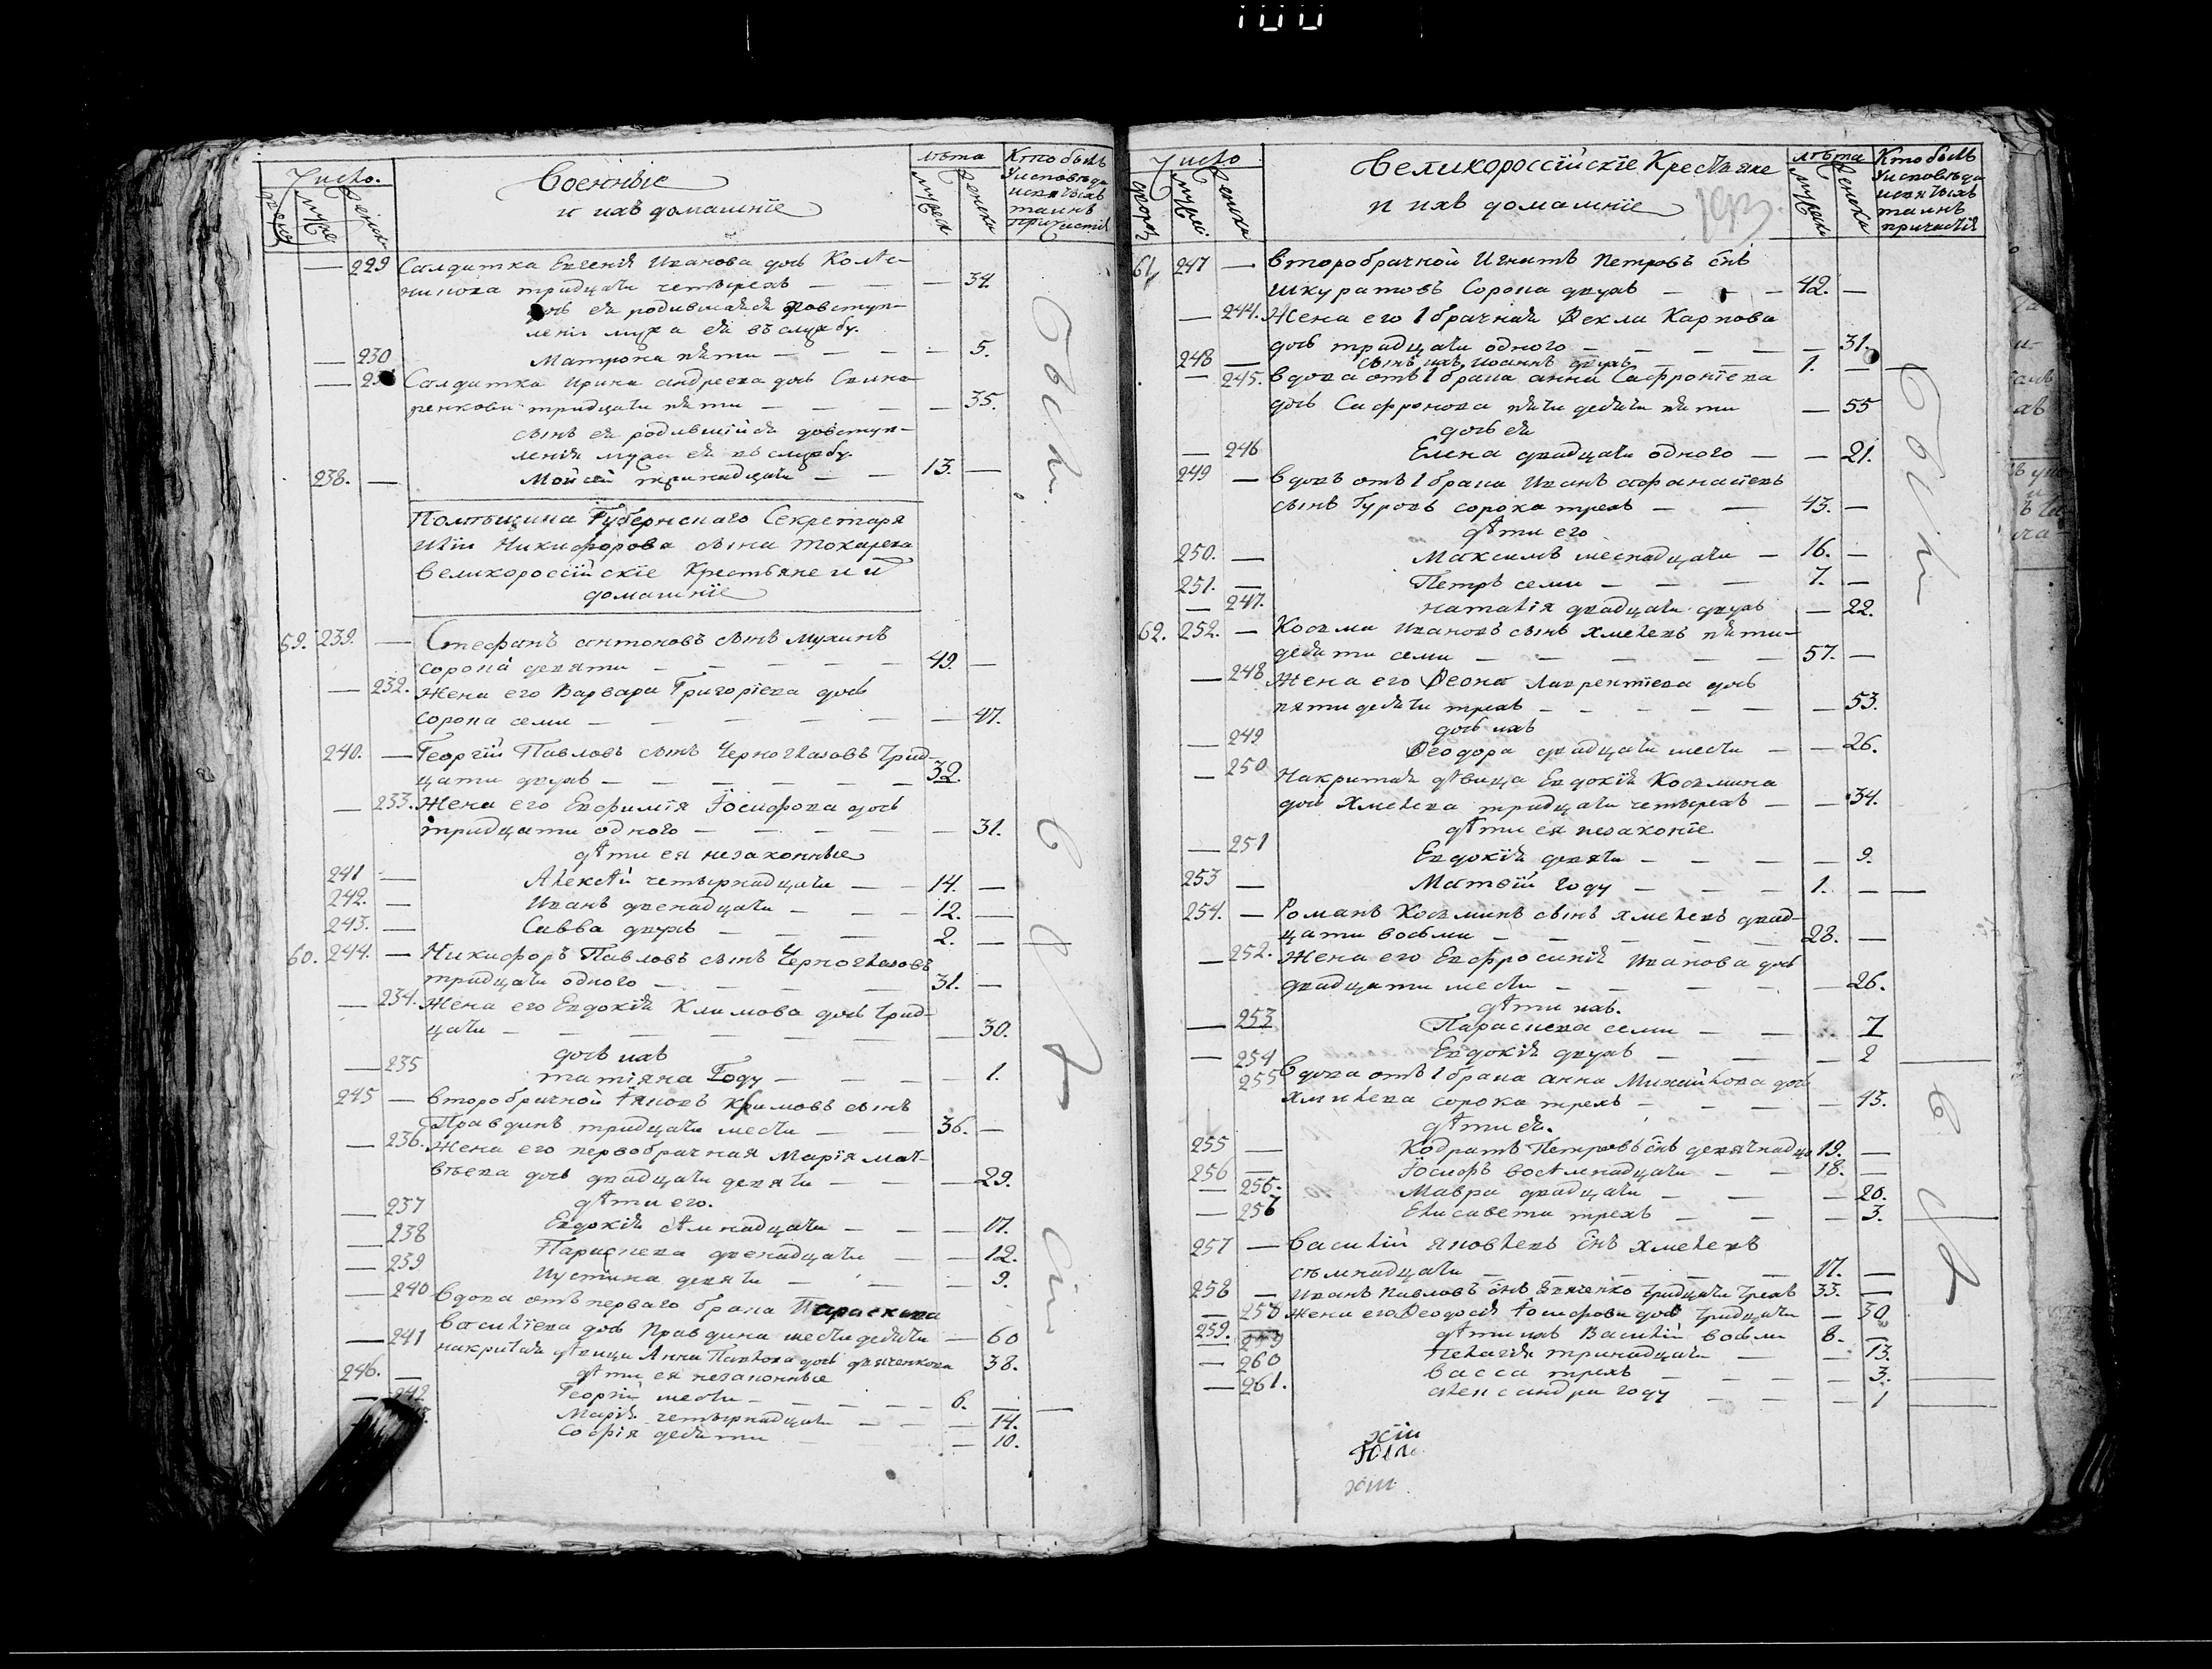 Число.
Военныя
и ихъ домашнїе
лѣта
мужеск
женска
Кто былъ
У исповѣди
и святыхъ
таинъ
причастія
229 Салдатка Евгенія Иванова дочь Колес-
никова тридцати четырехъ — — — 34.
дочь ея родившаяся до вступ-
ленія мужа ея въ службу.
— 230 Матрона пяти — — — 5.
— Салдатка Ирина андреева дочь
тридцати пяти — — — 35.
сынъ ея родившійся до вступ-
ленія мужа ея въ службу.
238. — Мойсей тринадцати — — 13. —
Помѣщика Губернскаго Секретаря
Никифорова сына Токарева
великороссійскїе Крестьяне и и
домашнїе
59. 239. — Стефанъ антоновъ сынъ Мухинъ
сорока девяти — — — 49. —
— 232. Жена его Варвара Григорїева дочь
сорока семи — — — 47.
240. — Георгій Павловъ сынъ Черноглазовъ трид-
цати двухъ — — — 32.
— 233. Жена его Евфимїя Іосифова дочь
тридцати одного — — — 31.
дѣти ея незаконные
241 — Алексѣй четырнадцати — — 14. —
242. — Иванъ двенадцати — — 12. —
243. — Савва двухъ — — — 2. —
60. 244. — Никифоръ Павловъ сынъ Черноглазовъ
тридцати одного — — — 31. —
— 234. Жена его Евдокїя Климова дочь трид-
цати — — — 30.
дочь ихъ
— 235 татїяна Году — — — 1.
245 — Второбрачной Іяковъ сынъ
Правдинъ тридцати шести — — 36. —
— 236. Жена его первобрачная Марїя мат-
вѣева дочь двадцати девяти — — — 29.
дѣти его.
— 237 Евдокїя сѣмнадцати — — 17.
— 238 Параскева двенадцати — 12.
— 239 Иустина девяти — — 9.
— 240 Вдова отъ перваго брака Параскева
василїева дочь Правдина шестидесяти — 60
— 241 накрытая дѣвица Анна Павлова дочь 38.
дѣти ея незаконные
246. — Георгій шести — — — 6. —
— 242 Марїя четырнадцати — — — 14.
Софїя десяти — — 10.
Число
Великороссїйскїе Крестьяне
и ихъ домашнїе
лѣта
мужеск
женска
Кто былъ
У исповѣди
и святыхъ
таинъ
причастія
61. 247 — Второбрачной Игнатъ Петровъ снъ
Шкуратовъ Сорока двухъ — — 42. —
— 244. Жена его 1 брачная Ѳекла Карпова
дочь тридцати одного — — — 31.
248 — сынъ ихъ Иоаннъ — 1. —
— 245. Вдова отъ 1 брака анна Сафронїева
дочь Сафронова пятидесяти пяти — 55
дочь ея
— 246 Елена двадцати одного — — 21.
249 — Вдовъ отъ 1 брака Иванъ афанасїевъ
сынъ Гуровъ сорока трехъ — — 43. —
дѣти его
250. — Максимъ шеснадцати — 16. —
251. — Петръ семи — — 7. —
— 247. наталїя двадцати двухъ — 22.
62. 252. — Косьма Ивановъ сынъ Хмелевъ пяти-
десяти семи — — — 57. —
— 248 Жена его Ѳеона Лаврентїева дочь
пятидесяти трехъ — — — 53.
дочь ихъ
— 249 Ѳеодора двадцати шести — — 26.
— 250 Накрытая дѣвица Евдокїя Косьмина
дочь Хмелева тридцати четырехъ — — 34.
дѣти ея незаконїе
— 251 Евдокїя девяти — — — 9.
253 — Матѳїй году — — — 1. —
254. — Романъ Косьминъ сынъ Хмелевъ двад-
цати восьми — — — 28. —
— 252. Жена его Евфросинїя Иванова дочь
двадцати шести — — — 26.
дѣти ихъ.
— 253 Параскева семи — — 7
— 254 Евдокїя двухъ — — — 2
255 Вдова отъ 1 брака анна Михайлова дочь
Хмилева сорока трехъ — — — 43.
дѣти ея.
255 — Кодратъ Петровъ снъ девятнадца 19. —
256 — Іосифъ восѣмнадцати — — 18. —
— 256. Мавра двадцати — — — 20.
— 257 Елисавета трехъ — — — 3.
257 — Василїй Яковлевъ снъ Хмелевъ
сѣмнадцати — — — 17. —
258 — Иванъ Павловъ снъ тридцати трехъ 33. —
— 258 Жена его Ѳеодосїя Іосифова дочь тридцати — 30.
259. — дѣти ихъ Василїй восьми 8. —
259 Пелагїя тринадцати — — 13.
— 260 Васса трехъ — — — 3.
— 261. александра году — — — 1